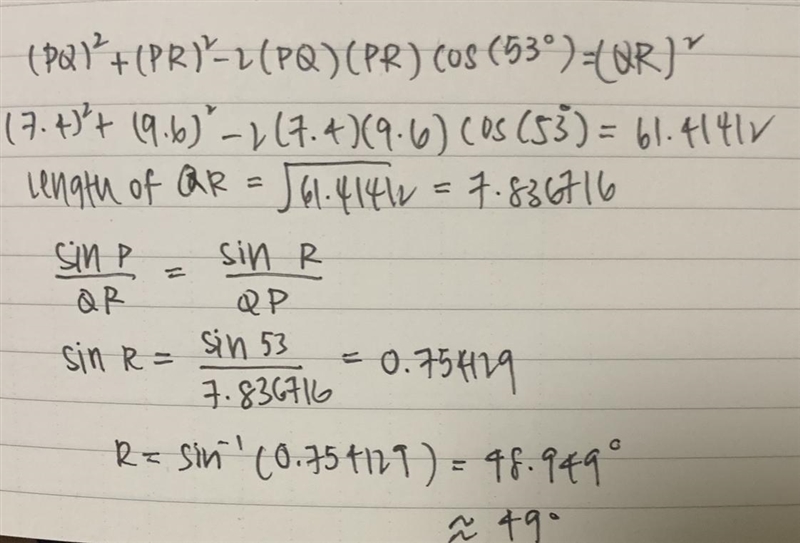 (PQ)² + (PR)² - 2(PQ)(PR) cos(53°) = (QR)²
(7.4)² + (9.6)² - 2(7.4)(9.6) cos(53°) = 61.41412
length of QR = √61.41412 = 7.836716
sin P / QR = sin R / QP
sin R = sin 53 / 7.836716 = 0.754129
R = sin⁻¹(0.754129) = 48.949°
≈ 49°